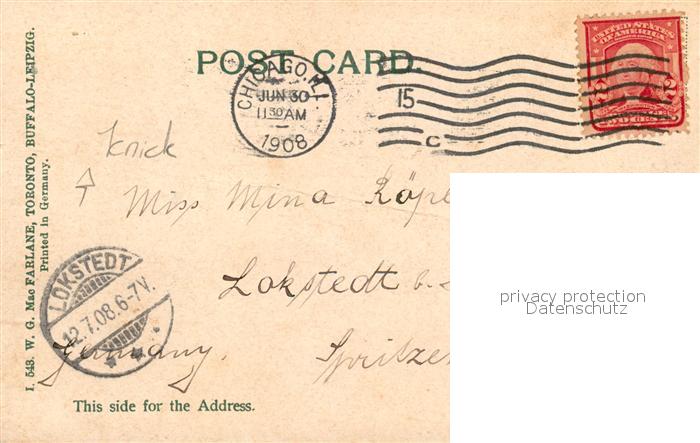 POST CARD
CHICAGO, ILL.
JUN 30
11 30 AM
1908
15
C
UNITED STATES
OF AMERICA
2 2
I. 543. W. G. Mac FARLANE, TORONTO, BUFFALO-LEIPZIG.
Printed in Germany.
Knick
Miss Mina Röpe
Lokstedt b.
LOKSTEDT
12.7.08.6-7V.
Germany. Spritze
This side for the Address.
privacy protection
Datenschutz